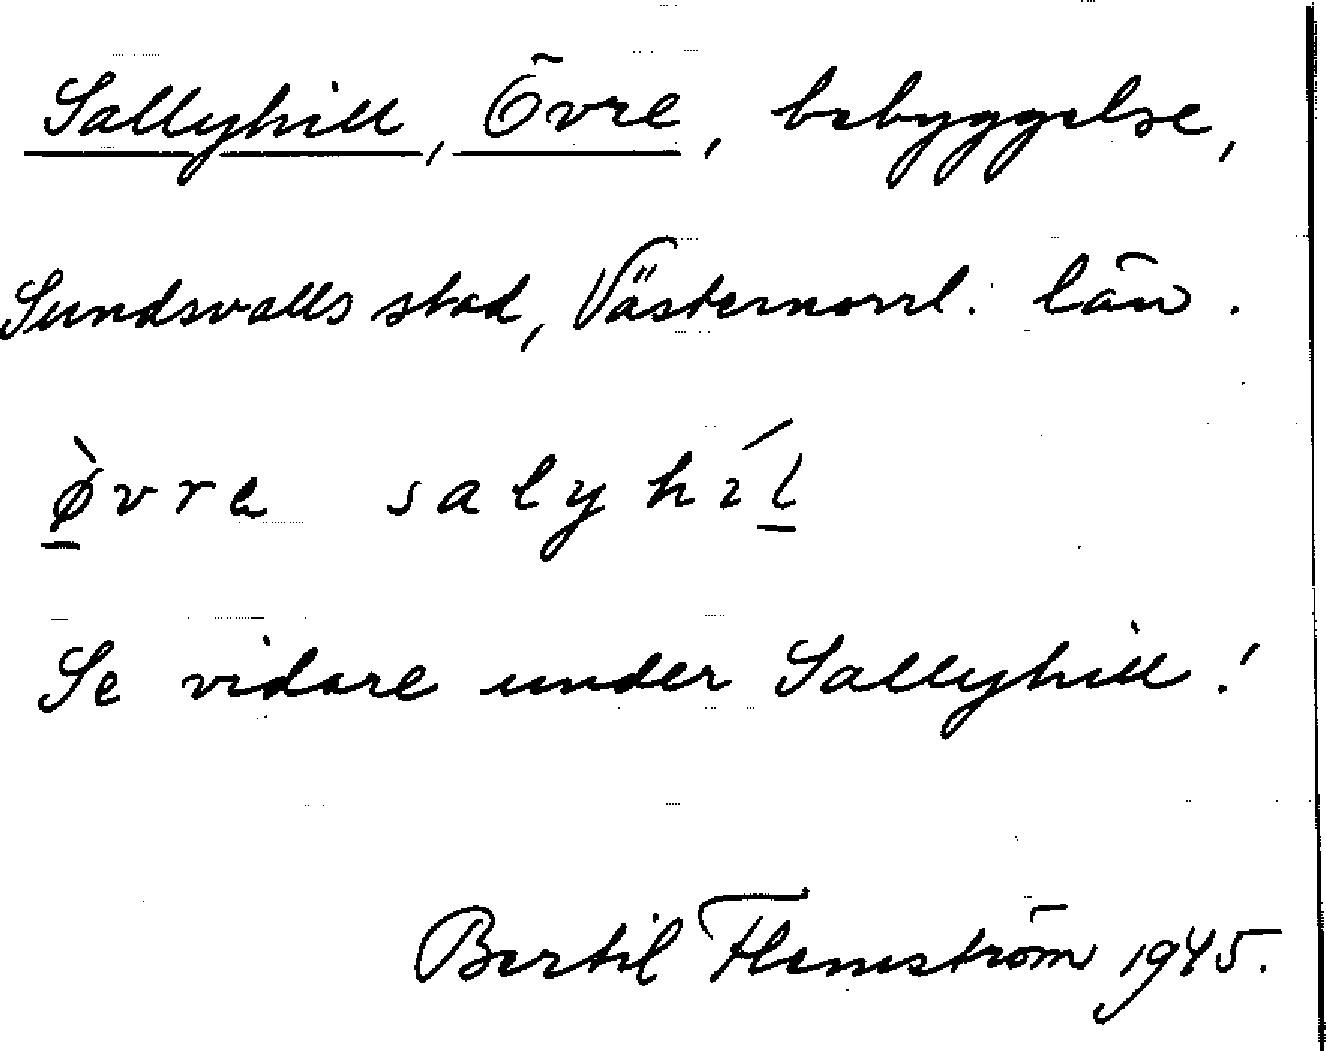 Sallyhill, Övre, bebyggelse,
Sundsvalls stad, Västernorrl. län.
ø̀vrə salyhíl
Se vidare under Sallyhill!
Bertil Flemström 1945.